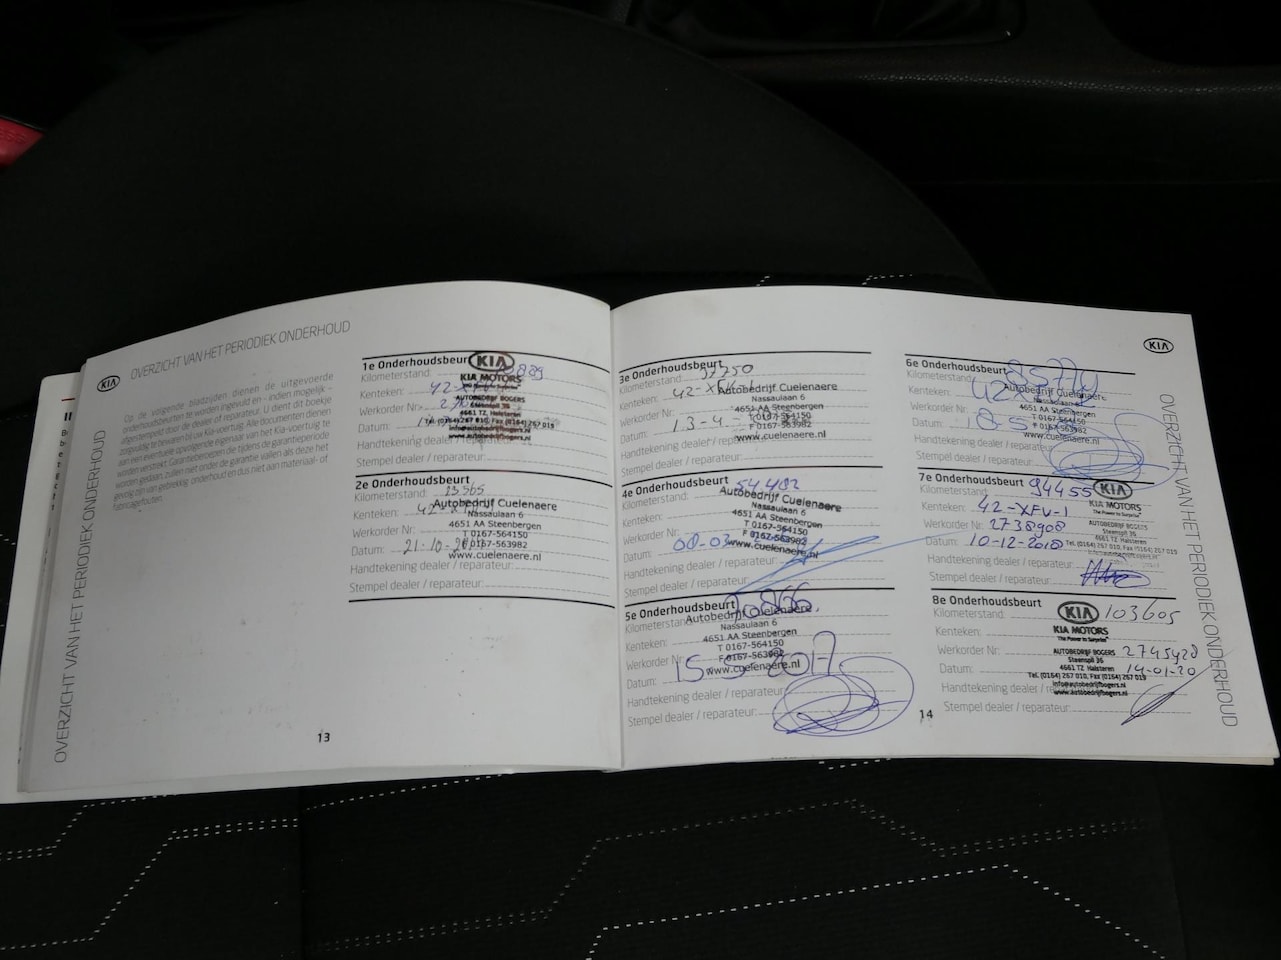 OVERZICHT VAN HET PERIODIEK ONDERHOUD
KIA
OVERZICHT VAN HET PERIODIEK ONDERHOUD
Op de volgende bladzijden dienen de uitgevoerde
onderhoudsbeurten te worden ingevuld en - indien mogelijk -
afgestempeld door de dealer of reparateur. U dient dit boekje
zorgvuldig te bewaren bij uw Kia-voertuig. Alle documenten dienen
aan een eventuele opvolgende eigenaar van het Kia-voertuig te
worden verstrekt. Garantieberoepen die tijdens de garantieperiode
worden gedaan, zullen niet onder de garantie vallen als deze het
gevolg zijn van gebrekkig onderhoud en dus niet aan materiaal- of
fabricagefouten.
13
1e Onderhoudsbeurt
Kilometerstand:
Kenteken:
Werkorder Nr:
Datum:
Handtekening dealer / reparateur:
Stempel dealer / reparateur:
KIA
KIA MOTORS
The Power to Surprise
AUTOBEDRIJF BOGERS
Steenspil 36
4661 TZ Halsteren
Tel. (0164) 267 010, Fax (0164) 267 019
info@autobedrijfbogers.nl
www.autobedrijfbogers.nl
2e Onderhoudsbeurt
Kilometerstand: 23565
Kenteken:
Werkorder Nr:
Datum: 21-10-
Handtekening dealer / reparateur:
Stempel dealer / reparateur:
Autobedrijf Cuelenaere
Nassaulaan 6
4651 AA Steenbergen
T 0167-564150
F 0167-563982
www.cuelenaere.nl
3e Onderhoudsbeurt
Kilometerstand: 37750
Kenteken: 42-XFV-1
Werkorder Nr:
Datum: 13-4-
Handtekening dealer / reparateur:
Stempel dealer / reparateur:
Autobedrijf Cuelenaere
Nassaulaan 6
4651 AA Steenbergen
T 0167-564150
F 0167-563982
www.cuelenaere.nl
4e Onderhoudsbeurt
Kilometerstand: 54.402
Kenteken:
Werkorder Nr:
Datum: 08-03
Handtekening dealer / reparateur:
Stempel dealer / reparateur:
Autobedrijf Cuelenaere
Nassaulaan 6
4651 AA Steenbergen
T 0167-564150
F 0167-563982
www.cuelenaere.nl
5e Onderhoudsbeurt
Kilometerstand:
Kenteken:
Werkorder Nr:
Datum: 15-5-2017
Handtekening dealer / reparateur:
Stempel dealer / reparateur:
Autobedrijf Cuelenaere
Nassaulaan 6
4651 AA Steenbergen
T 0167-564150
F 0167-563982
www.cuelenaere.nl
6e Onderhoudsbeurt
Kilometerstand:
Kenteken:
Werkorder Nr:
Datum: 18-5
Handtekening dealer / reparateur:
Stempel dealer / reparateur:
Autobedrijf Cuelenaere
Nassaulaan 6
4651 AA Steenbergen
T 0167-564150
F 0167-563982
www.cuelenaere.nl
7e Onderhoudsbeurt
Kilometerstand: 94455
Kenteken: 42-XFV-1
Werkorder Nr: 2738908
Datum: 10-12-2018
Handtekening dealer / reparateur:
Stempel dealer / reparateur:
KIA
KIA MOTORS
The Power to Surprise
AUTOBEDRIJF BOGERS
Steenspil 36
4661 TZ Halsteren
Tel. (0164) 267 010, Fax (0164) 267 019
8e Onderhoudsbeurt
Kilometerstand: 103605
Kenteken:
Werkorder Nr: 2745428
Datum: 14-01-20
Handtekening dealer / reparateur:
Stempel dealer / reparateur:
KIA
KIA MOTORS
The Power to Surprise
AUTOBEDRIJF BOGERS
Steenspil 36
4661 TZ Halsteren
Tel. (0164) 267 010, Fax (0164) 267 019
info@autobedrijfbogers.nl
www.autobedrijfbogers.nl
14
KIA
OVERZICHT VAN HET PERIODIEK ONDERHOUD